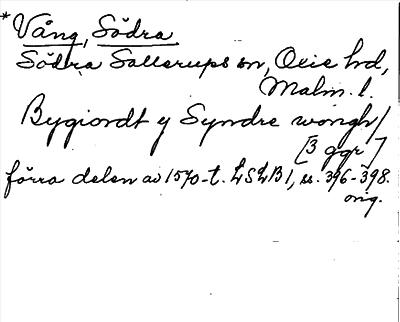 * Vång, Södra
Södra Sallerups sn, Oxie hd,
Malm. l.
Bygiordt y Syndre wongh/
[3 ggr]
förra delen av 1570-t. LSLB1, ss. 396-398.
orig.